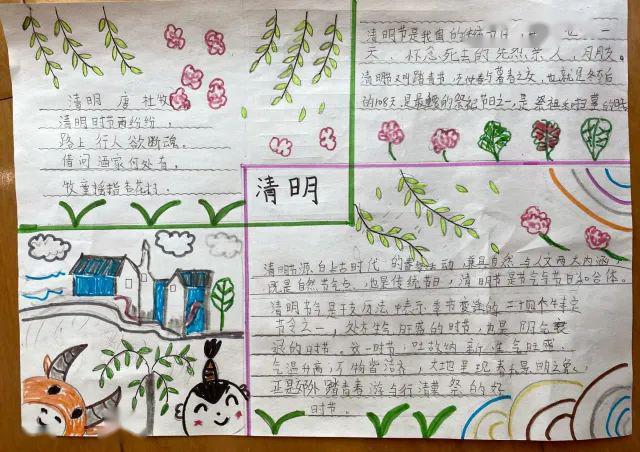 清明 唐 杜牧
清明时节雨纷纷，
路上行人欲断魂。
借问酒家何处有，
牧童遥指杏花村。
清明节是我国的传统节日
天，怀念死去的先烈亲人
清明
也就是冬至后
的108天，是最重要的祭祀节日之一，是祭祖
清明
清明节源自上古时代的 动，兼具自然与人文两大内涵
既是自然节气，也是传统节日，清明节是节气与节日和合体。
清明节气是干支历法中表示季节变迁的二十四个特定
节令之一，处在生气旺盛的时节，也是阴气衰
退的时节。这一时节，吐故纳新、生气旺盛、
气温升高，万物皆 大地呈现春 景明之象，
正是郊外踏青春游与行清墓祭的好
时节。